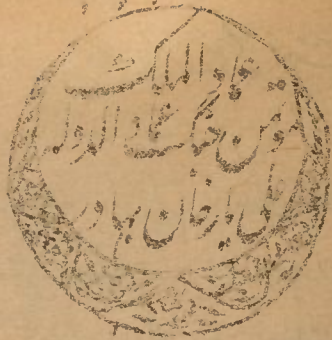 عماد الملک
تمن جنگ عماد الدولہ
علی یار خان بہادر